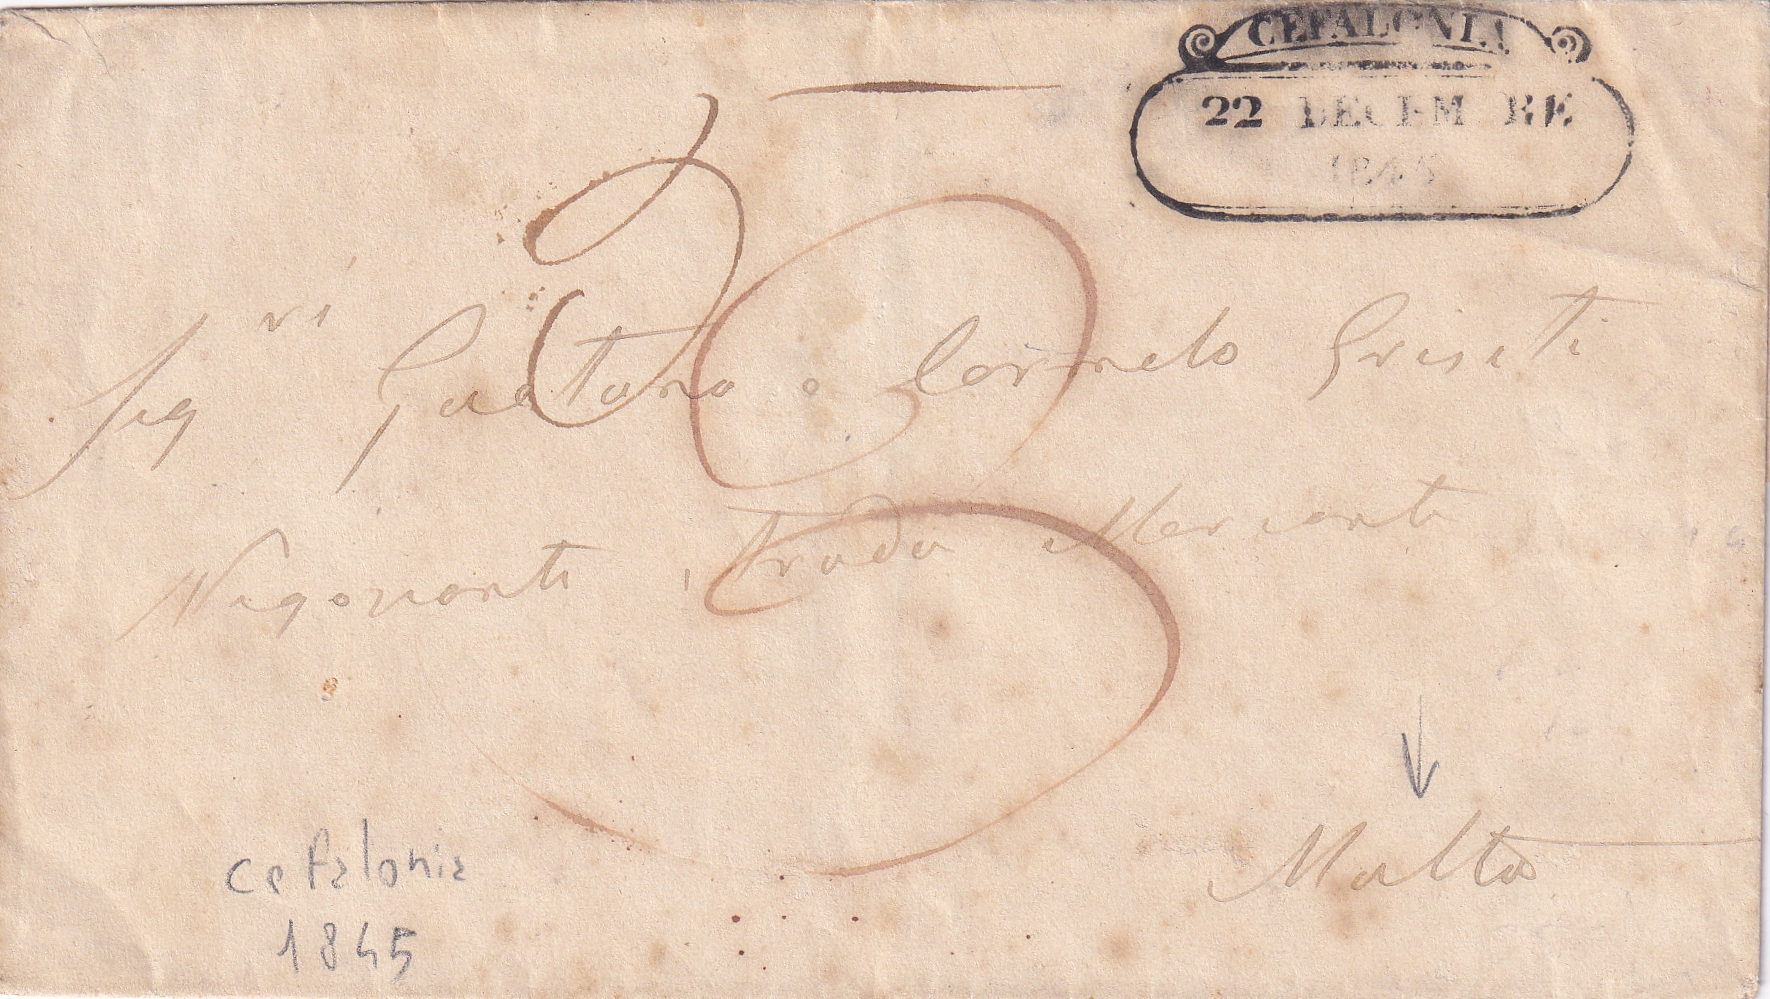 CEFALONIA
22 DECEMBRE
1845
Sig.ri Gaetano e Carmelo Griseti
Negozianti, Strada Mercanti
Malta
cefalonia
1845